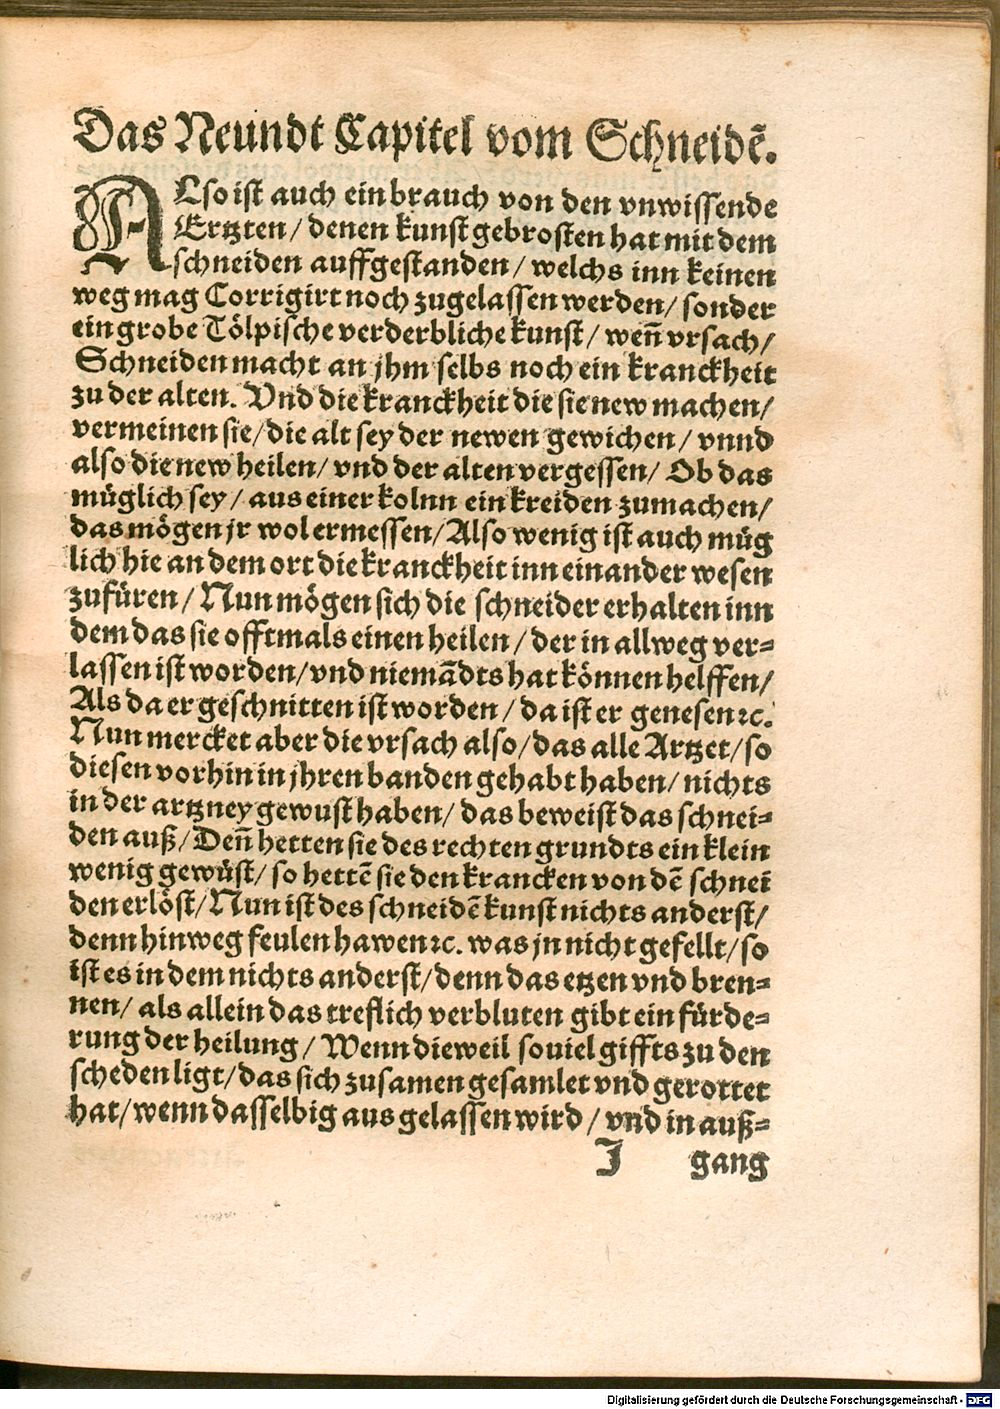 Das Neundt Capitel vom Schneidẽ.
ALso ist auch ein brauch von den vnwissende
Ertzten / denen kunst gebrosten hat mit dem
schneiden auffgestanden / welchs inn keinen
weg mag Corrigirt noch zugelassen werden / sonder
ein grobe Tölpische verderbliche kunst / weñ vrsach /
Schneiden macht an jhm selbs noch ein kranckheit
zu der alten. Vnd die kranckheit die sie new machen /
vermeinen sie / die alt sey der newen gewichen / vnnd
also die new heilen / vnd der alten vergessen / Ob das
müglich sey / aus einer kolnn ein kreiden zumachen /
das mögen jr wol ermessen / Also wenig ist auch müg
lich hie an dem ort die kranckheit inn einander wesen
zufüren / Nun mögen sich die schneider erhalten inn
dem das sie offtmals einen heilen / der in allweg ver=
lassen ist worden / vnd niemãdts hat können helffen /
Als da er geschnitten ist worden / da ist er genesen ꝛc.
Nun mercket aber die vrsach also / das alle Artzet / so
diesen vorhin in jhren banden gehabt haben / nichts
in der artzney gewust haben / das beweist das schnei=
den auß / Deñ hetten sie des rechten grundts ein klein
wenig gewüst / so hettẽ sie den krancken von dẽ schnei
den erlöst / Nun ist des schneidẽ kunst nichts anderst /
denn hinweg feulen hawen ꝛc. was jn nicht gefellt / so
ist es in dem nichts anderst / denn das etzen vnd bren=
nen / als allein das treflich verbluten gibt ein fürde=
rung der heilung / Wenn dieweil souiel giffts zu den
scheden ligt / das sich zusamen gesamlet vnd gerottet
hat / wenn dasselbig aus gelassen wird / vnd in auß=
J gang
Digitalisierung gefördert durch die Deutsche Forschungsgemeinschaft - DFG